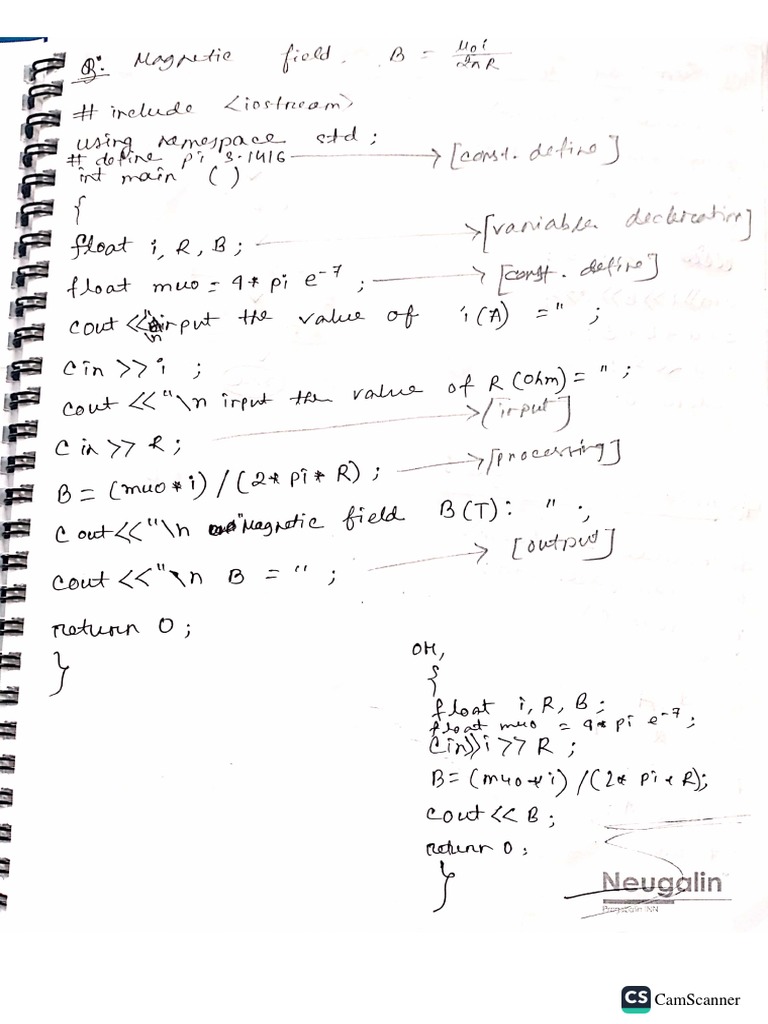 Q: Magnetic field. B = μ0 i / 2π R
# include <iostream>
using namespace std ;
# define pi 3.1416 → [const. define]
int main ( )
{
float i, R, B ; → [variable declaration]
float muo = 4 * pi e^-7 ; → [const. define]
cout << "\n input the value of i(A) = " ;
cin >> i ;
cout << "\n input the value of R (ohm) = " ;
cin >> R ; → [input]
B = (muo * i) / (2 * pi * R) ; → [processing]
cout << "\n Magnetic field B(T) : " ;
cout << "\n B = " ; → [output]
return 0 ;
}
OR,
{
float i, R, B ;
float muo = 4 * pi e^-7 ;
cin >> i >> R ;
B = (muo * i) / (2 * pi * R);
cout << B ;
return 0 ;
}
Neugalin
CS CamScanner